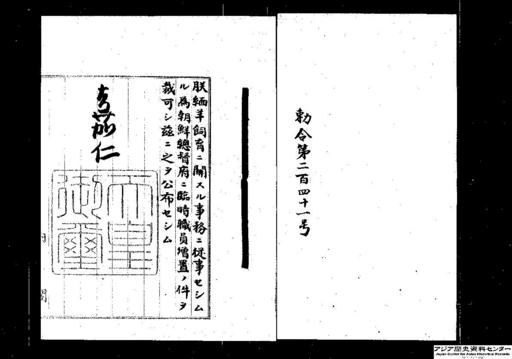 勅令第二百四十一号
朕緬羊飼育ニ關スル事務ニ從事セシム
ル為朝鮮總督府ニ臨時職員增置ノ件ヲ
裁可シ茲ニ之ヲ公布セシム
嘉仁
天皇
御璽
内
閣
アジア歴史資料センター
Japan Center for Asian Historical Records